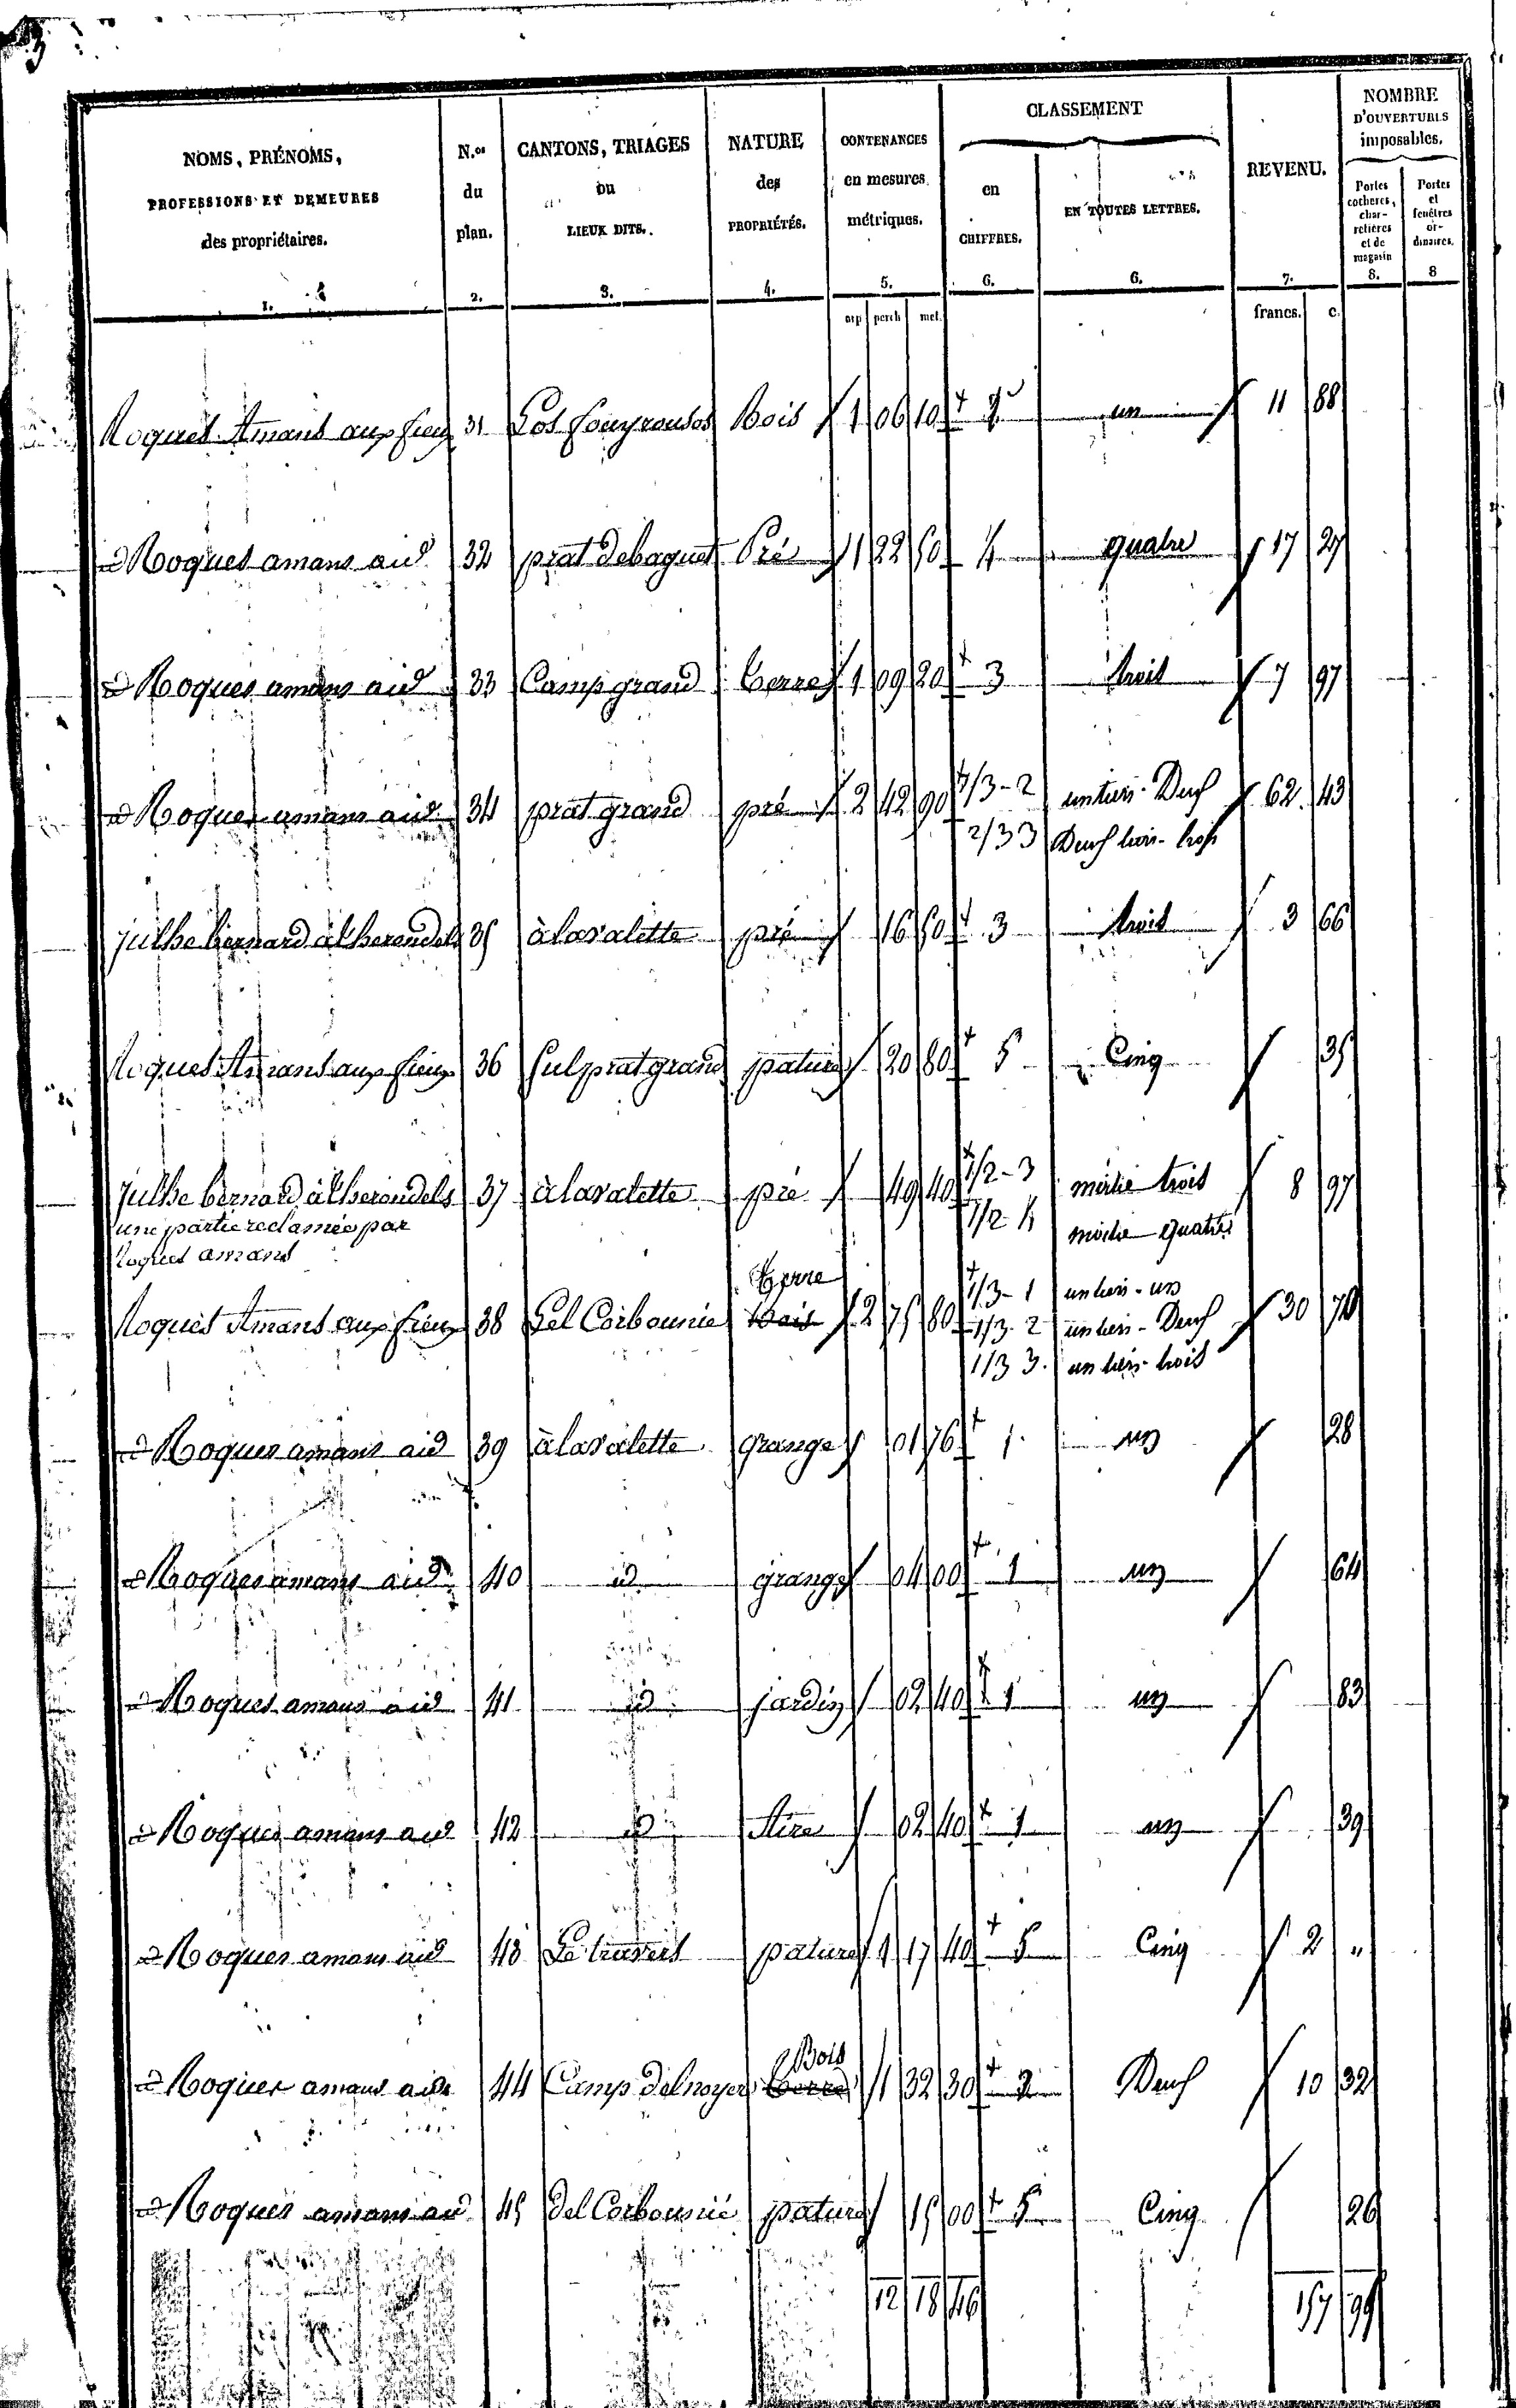 3
NOMS, PRÉNOMS,
PROFESSIONS ET DEMEURES
des propriétaires.
1.
N.os
du
plan.
2.
CANTONS, TRIAGES
ou
LIEUX DITS.
3.
NATURE
des
PROPRIÉTÉS.
4.
CONTENANCES
en mesures
métriques.
5.
CLASSEMENT
en
CHIFFRES.
6.
EN TOUTES LETTRES.
6.
REVENU.
7.
NOMBRE
D'OUVERTURES
imposables.
Portes
cochères,
char-
retières
et de
magasin
8.
Portes
et
fenêtres
or-
dinaires.
8
arp perch met. francs. c.
Roques Amans aux fieux 31 Los fouyrousos Bois 1 06 10 1 un 11 88
Roques amans aud 32 prat debaguet Pré 1 22 50 4 quatre 17 27
Roques amans aud 33 Camp grand Terre 1 09 20 3 trois 7 97
Roques amans aud 34 prat grand pré 2 42 90 1/3 - 2 un tiers - Deux 62 43
2/3 3 Deux tiers - trois
julhe bernard à lherendels 35 à lavalette pré 16 50 3 trois 3 66
Roques Amans aux fieux 36 sul prat grand pature 20 80 5 Cinq 35
julhe bernard à lherendels 37 à lavalette pré 49 40 1/2 - 3 moitié trois 8 97
une partie reclamée par 1/2 4 moitié quatre
Roques amans
Terre 1/3 - 1 un tiers - un
Roques Amans aux fieux 38 Del Corbounié Bois 2 75 80 1/3 2 un tiers - Deux 30 70
1/3 3. un tiers - trois
Roques amans aud 39 à lavalette grange 01 76 1 un 28
Roques amans aud 40 id grange 04 00 1 un 64
Roques amans aud 41 id jardin 02 40 1 un 83
Roques amans aud 42 id Aire 02 40 1 un 39
Roques amans aud 43 Le travers pature 1 17 40 5 Cinq 2 "
Bois
Roques amans aud 44 Camp del noyer Terre 1 32 30 2 Deux 10 32
Roques amans aud 45 Del Corbounié pature 15 00 5 Cinq 26
12 18 46 157 99